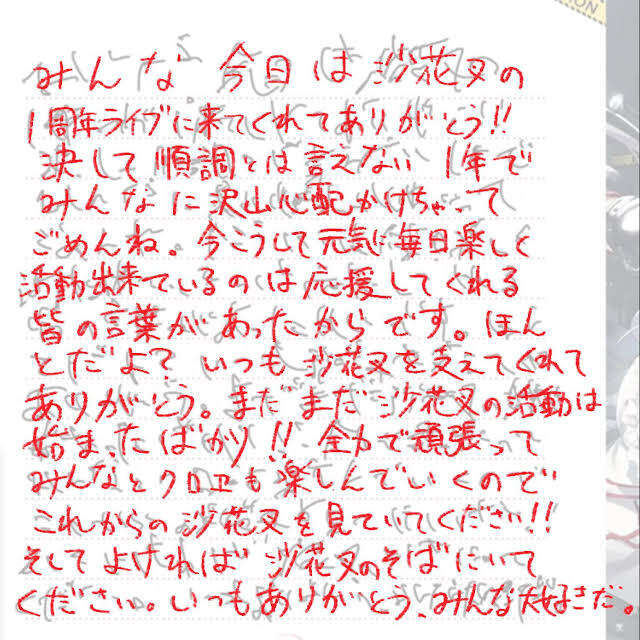 みんな 今日は 沙花叉の
1周年ライブに来てくれてありがとう!!
決して順調とは言えない 1年で
みんなに沢山心配かけちゃって
ごめんね。今こうして元気に毎日楽しく
活動出来ているのは応援してくれる
皆の言葉があったからです。ほん
とだよ? いつも 沙花叉を支えてくれて
ありがとう。まだまだ沙花叉の活動は
始まったばかり!! 全力で頑張って
みんなとクロヱも楽しんでいくので
これからの 沙花叉を見ていてください!!
そして よければ 沙花叉のそばにいて
ください。いつもありがとう、みんな大好きだ。